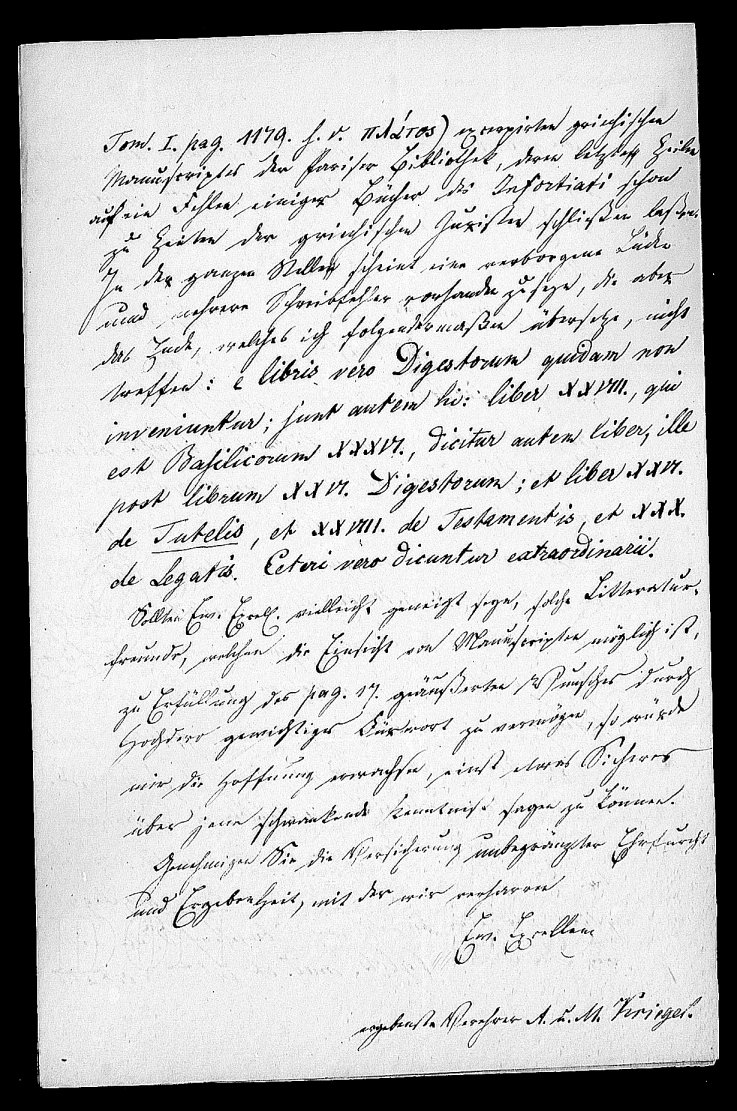 Tom. I. pag. 1179. s. v. πλάτος) excerpirten griechischen
Manuscriptes der Pariser Bibliothek, deren letzte Zeilen
auf ein Fehlen einiger Bücher des Infortiati schon
zu Zeiten der griechischen Juristen schließen lassen.
In der ganzen Stelle scheint eine verborgene Lücke
und mehrere Schreibfehler vorhanden zu seyn, die aber
das Ende, welches ich folgendermaßen übersetze, nicht
treffen: e libris vero Digestorum quidam non
inveniuntur; sunt autem hi: liber XXVIII., qui
est Basilicorum XXXVI., dicitur autem liber, ille
post librum XXVI. Digestorum; et liber XXVI.
de Tutelis, et XXVIII. de Testamentis, et XXX.
de Legatis. Ceteri vero dicuntur extraordinarii.
Sollten Ew. Excell. vielleicht geneigt seyn, solche Litteratur-
freunde, welchen die Einsicht von Manuscripten möglich ist,
zu Erfüllung des pag. 17. geäußerten Wunsches durch
Hochdero gewichtiges Fürwort zu vermögen, so würde
mir die Hoffnung erwachsen, einst etwas Sicheres
über jene schwankende Kenntniß sagen zu können.
Genehmigen Sie die Versicherung unbegränzter Ehrfurcht
und Ergebenheit, mit der wir verharren
Ew. Excellenz
ergebenste Verehrer A. u. M. Kriegel.